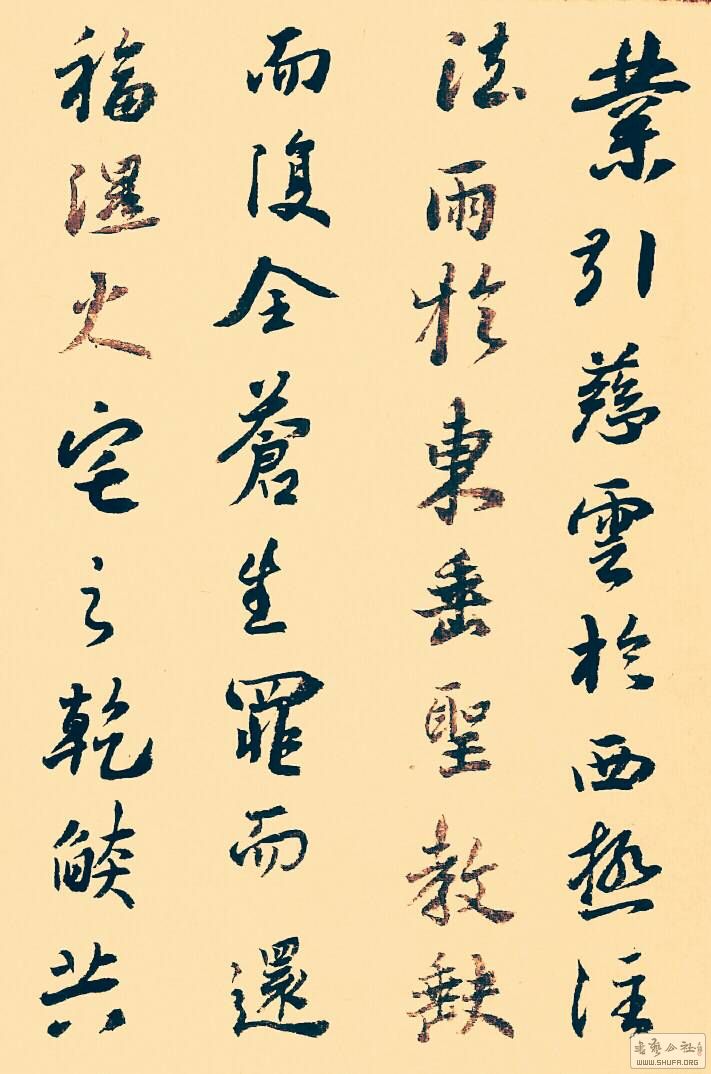 業引慈雲於西極注
法雨於東垂聖教缺
而復全蒼生罪而還
福濕火宅之乾燄共
書藝公社
WWW.SHUFA.ORG